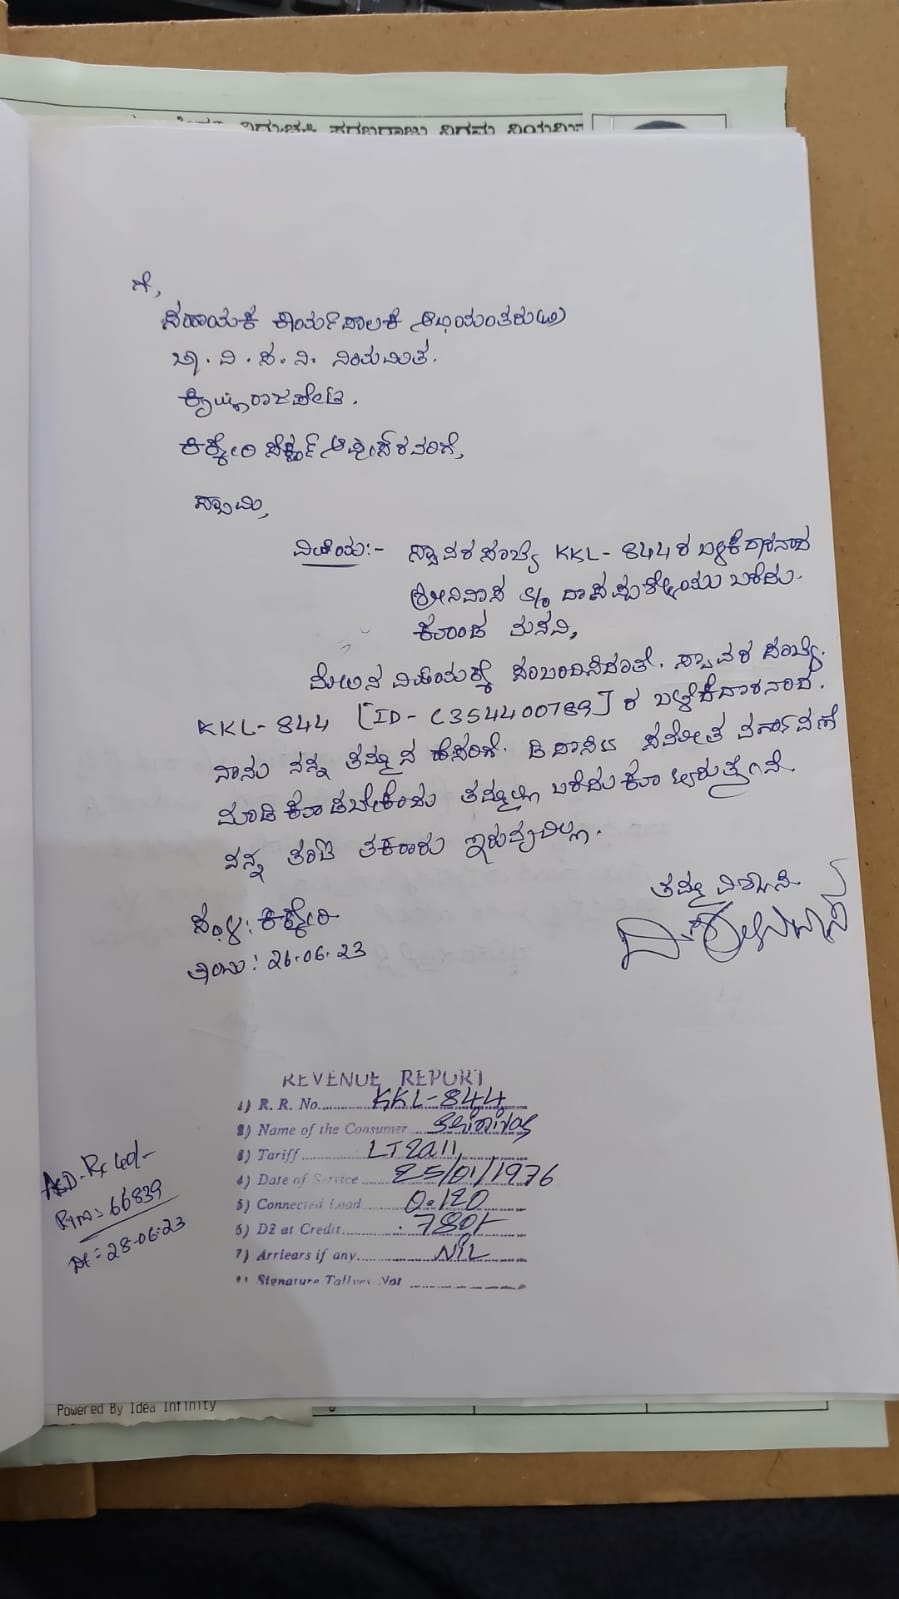 ಗೆ,
ಸಹಾಯಕ ಕಾರ್ಯಪಾಲಕ ಅಭಿಯಂತರು(ವಿ)
ಚಾ. ವಿ. ಸ. ನಿ. ನಿಯಮಿತ.
ಕೃಷ್ಣರಾಜಪೇಟೆ.
ಕಿಕ್ಕೇರಿ ಸೆಕ್ಷನ್ ಆಫೀಸರವರಿಗೆ,
ಸ್ವಾಮಿ,
ವಿಷಯ:- ಸ್ಥಾವರ ಸಂಖ್ಯೆ KKL-844ರ ಬಳಕೆದಾರನಾದ
ಶ್ರೀನಿವಾಸ S/o ಬರೆದು
ಕೊಂಡ ಮನವಿ,
ಮೇಲಿನ ವಿಷಯಕ್ಕೆ ಸಂಬಂದಿಸಿದಂತೆ. ಸ್ಥಾವರ ಸಂಖ್ಯೆ.
KKL-844 [ID- C354400789] ರ ಬಳಕೆದಾರನಾದ.
ನಾನು ನನ್ನ ತಮ್ಮನ ಹೆಸರಿಗೆ. ವರ್ಗಾವಣೆ
ಮಾಡಿ ಕೊಡಬೇಕೆಂದು ತಮ್ಮಲ್ಲಿ ಬರೆದುಕೊಳ್ಳುತ್ತೇನೆ.
ನನ್ನ ತಕರಾರು ಇರುವುದಿಲ್ಲ.
ತಮ್ಮ ವಿಶ್ವಾಸಿ
ಸ್ಥಳ: ಕಿಕ್ಕೇರಿ
ದಿನಾಂಕ: 26.06.23
REVENUE REPORT
1) R. R. No. KKL-844
2) Name of the Consumer Srinivas
3) Tariff LT2a11
4) Date of Service 25/01/1976
5) Connected Load 0.120
6) D2 at Credit 780/-
7) Arriears if any NIL
Signature Not
ASD-Rs 60/-
66839
Dt: 28-06-23
Powered By Idea Infinity